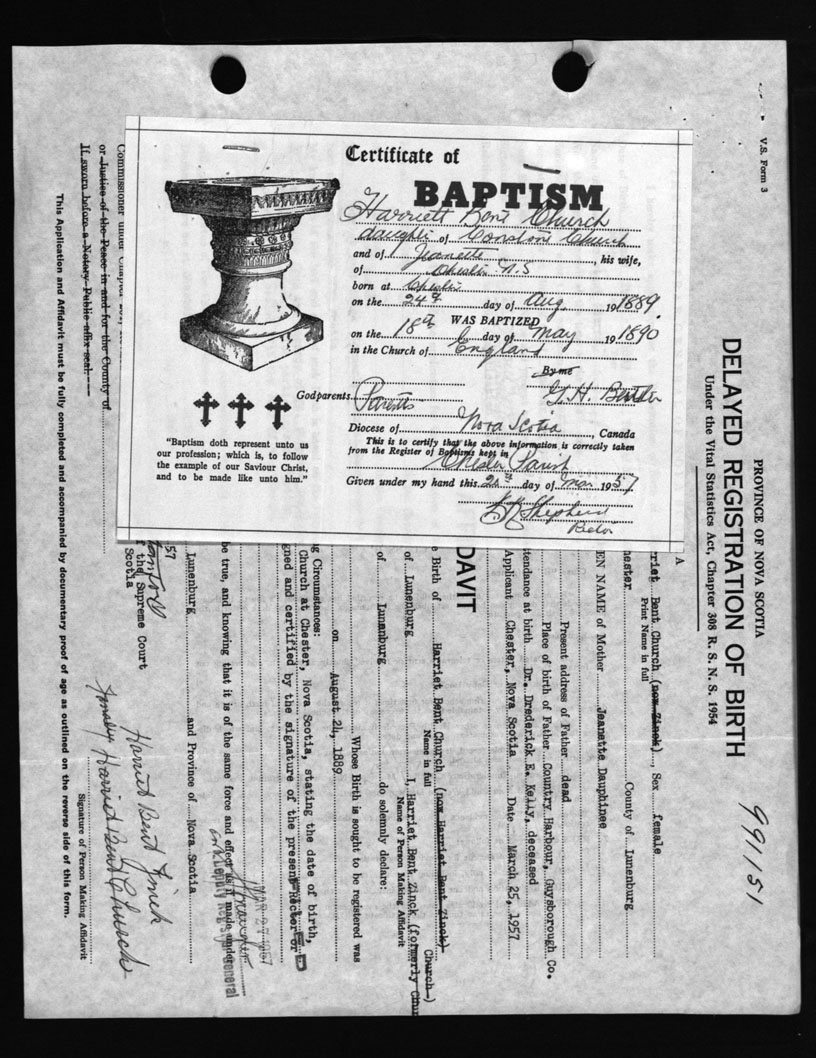 Certificate of
BAPTISM
Harriett Bent Church
daughter of Constant Church
and of Jeanette, his wife,
of Chester N.S
born at Chester
on the 24th day of Aug 1889
WAS BAPTIZED
on the 18th day of May 1890
in the Church of England
By me
G. H. Butler
Godparents Parents
Diocese of Nova Scotia, Canada
This is to certify that the above information is correctly taken
from the Register of Baptisms kept in
Chester Parish
Given under my hand this day of Mar 1957
Shepherd
Rector
"Baptism doth represent unto us
our profession; which is, to follow
the example of our Saviour Christ,
and to be made like unto him."
V.S. Form 3
PROVINCE OF NOVA SCOTIA
DELAYED REGISTRATION OF BIRTH
Under the Vital Statistics Act, Chapter 308 R. S. N. S. 1954
991151
A
riet Bent Church (now Zinck), Sex female
Print Name in full
hester County of Lunenburg
EN NAME of Mother Jeanette Dauphinee
Present address of Father dead
Place of birth of Father Country Harbour, Guysborough Co.
ttendance at birth Dr. Drederick E. Kelly, deceased
Applicant Chester, Nova Scotia Date March 25, 1957
DAVIT
e Birth of Harriet Bent Church (now Harriet Bent Zinck)
Name in full
Church)
I, Harriet Bent Zinck (formerly Chur
Name of Person Making Affidavit
of Lunenburg
of Lunanburg do solemnly declare:
Whose Birth is sought to be registered was
on August 24, 1889
ng Circumstances:
Church at Chester, Nova Scotia, stating the date of birth,
gned and certified by the signature of the present Rector or
be true, and knowing that it is of the same force and effect as if made under
MAR 27 1957
Deputy Registrar General
Lunenburg and Province of Nova Scotia
57
f the Supreme Court
Scotia
Harriet Bent Zinck
formerly Harriet Bent Church
Signature of Person Making Affidavit
Commissioner under Chapter
or Justice of the Peace in and for the County of
If sworn before a Notary Public affix seal.
This Application and Affidavit must be fully completed and accompanied by documentary proof of age as outlined on the reverse side of this form.